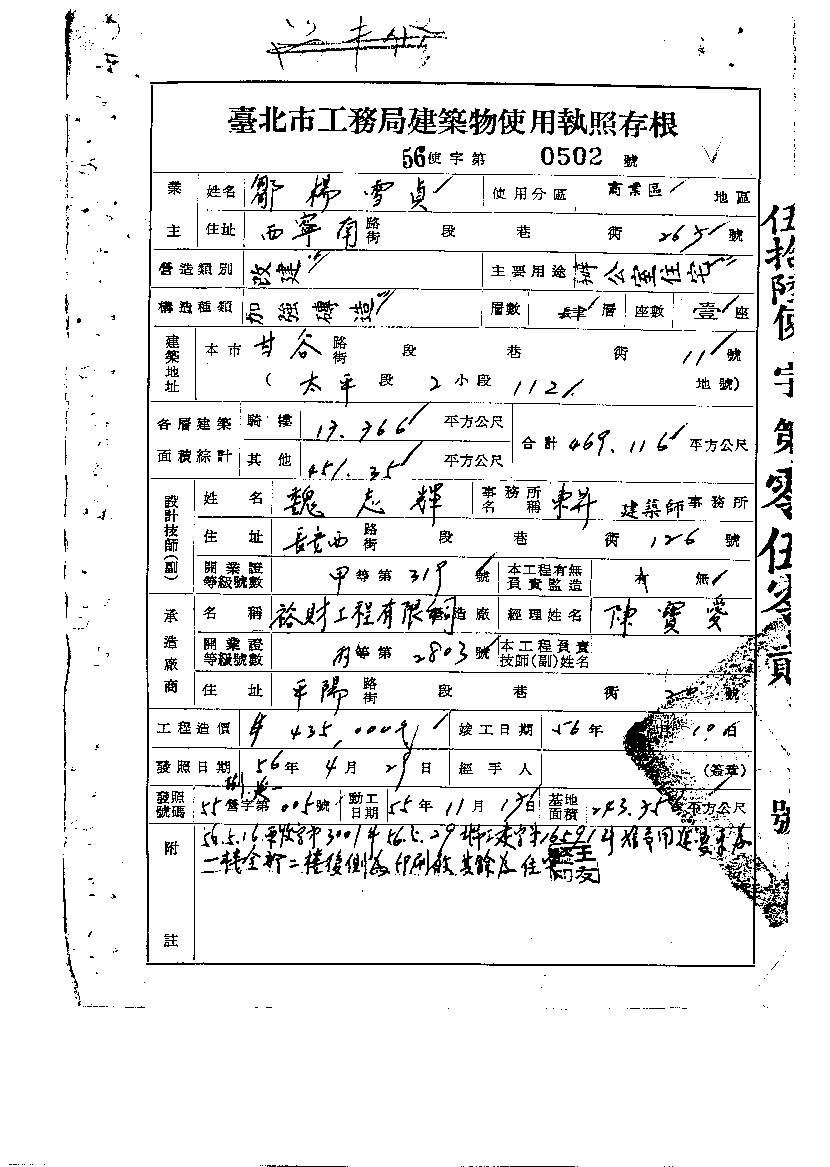 臺北市工務局建築物使用執照存根
56使字第 0502 號
業主 姓名 鄒楊雪貞 使用分區 商業區 地區
住址 西寧南 路街 段 巷 衖 265 號
營造類別 改建 主要用途 辦公室住宅
構造種類 加強磚造 層數 肆 層 座數 壹 座
建築地址 本市 甘谷 路街 段 巷 衖 11 號
( 太平 段 2 小段 112 地號)
各層建築面積綜計 騎樓 17.766 平方公尺 合計 469.116 平方公尺
其他 451.35 平方公尺
設計技師(副) 姓名 魏志輝 事務所名稱 東昇 建築師事務所
住址 長安西 路街 段 巷 衖 126 號
開業證等級號數 甲等第 319 號 本工程有無負責監造 有 無
承造廠商 名稱 裕財工程有限公司 營造廠 經理姓名 陳寶愛
開業證等級號數 等第 2803 號 本工程負責技師(副)姓名
住址 平陽 路街 段 巷 衖 號
工程造價 435,000 竣工日期 56年 月10日
發照日期 56年4月29日 經手人 (簽章)
發照號碼 55營字第005號 動工日期 55年11月17日 基地面積 243.35 平方公尺
附註 56.5.16 字第3001 56. .29 字第16591
一樓全部二樓後側為印刷廠其餘為住
伍拾陸使字第零伍零貳號